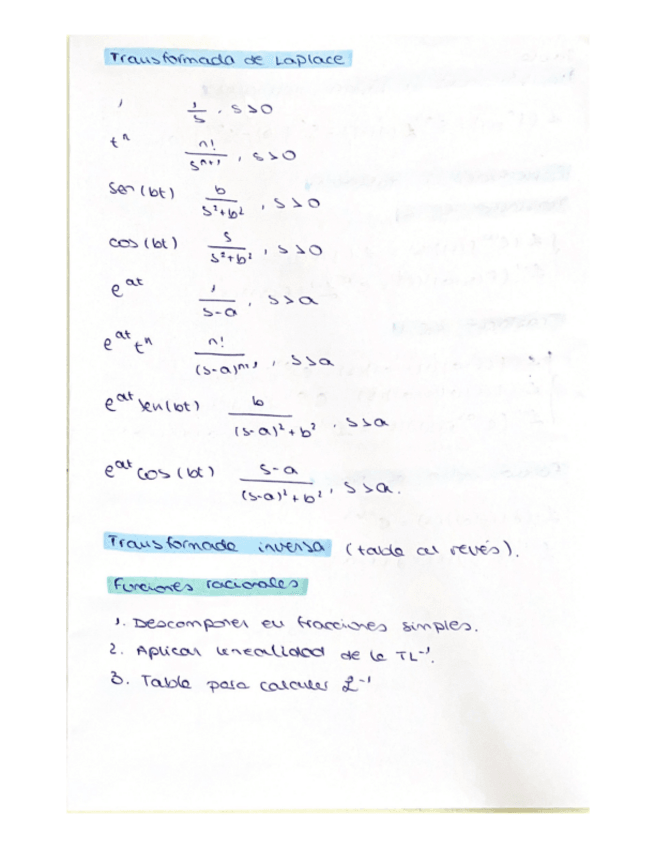 Transformada de Laplace
1 1/s, s>0
t^n n!/s^(n+1), s>0
sen(bt) b/(s²+b²), s>0
cos(bt) s/(s²+b²), s>0
e^(at) 1/(s-a), s>a
e^(at) t^n n!/(s-a)^(n+1), s>a
e^(at) sen(bt) b/((s-a)²+b²), s>a
e^(at) cos(bt) (s-a)/((s-a)²+b²), s>a.
Transformada inversa (tabla al revés).
Funciones racionales
1. Descomponer en fracciones simples.
2. Aplicar linealidad de la TL⁻¹.
3. Tabla para calcular ℒ⁻¹